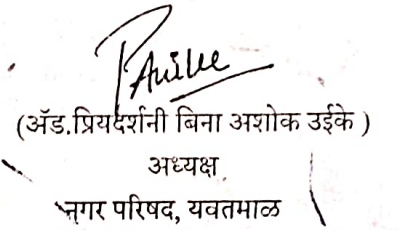 (अॅड.प्रियदर्शनी बिना अशोक उईके )
अध्यक्ष
नगर परिषद, यवतमाळ